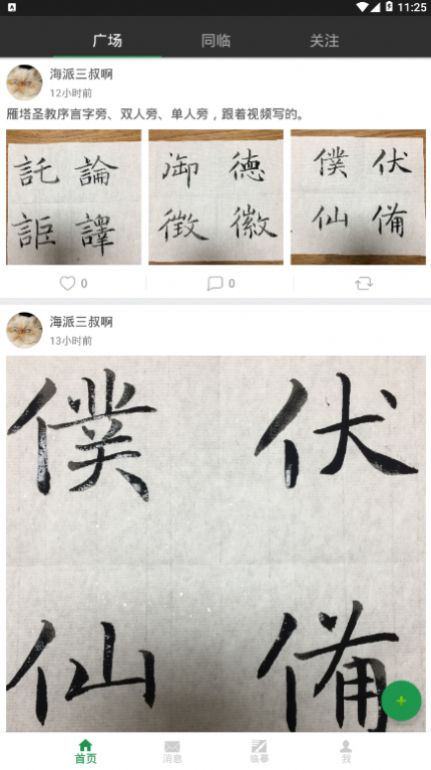 11:25
广场 同临 关注
海派三叔啊
12小时前
雁塔圣教序言字旁、双人旁、单人旁，跟着视频写的。
託 論 御 德 僕 伏
詎 譯 徵 徽 仙 備
0 0
海派三叔啊
13小时前
僕 伏
仙 備
首页 消息 临摹 我